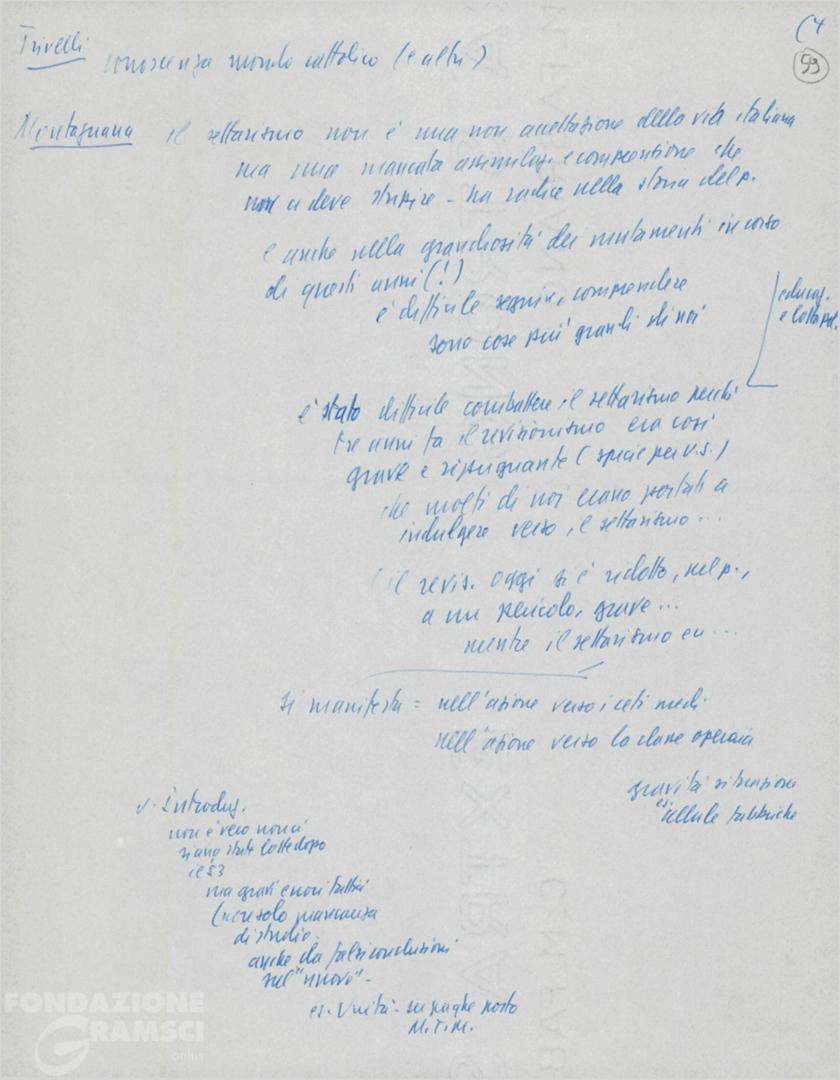 (4
59
Trivelli conoscenza mondo cattolico (e altri)
Montagnana il settarismo non è una non accettazione della vita italiana
ma una mancata assimilaz. e comprensione che
non ci deve stupire - ha radice nella storia del p.
e anche nella grandiosità dei mutamenti in corso
di questi anni (!)
è difficile seguire, comprendere
sono cose più grandi di noi
educaz.
e lotta pol.
è stato difficile combattere il settarismo perché
tre anni fa il revisionismo era così
grave e ripugnante (specie per v.s.)
che molti di noi erano portati a
indulgere verso il settarismo...
(il revis. oggi si è ridotto, nel p.,
a un pericolo, grave...
mentre il settarismo en...
si manifesta = nell'azione verso i ceti medi
nell'azione verso la classe operaia
gravità situazione
es. cellule fabbriche
v. Introduz.
non è vero non ci
siano state lotte dopo
il 53
ma gravi errori
(non solo mancanza
di studio -
anche da false conclusioni
sul "nuovo" -
es. Unità - su paghe posto
M.T.M.
FONDAZIONE
GRAMSCI
onlus